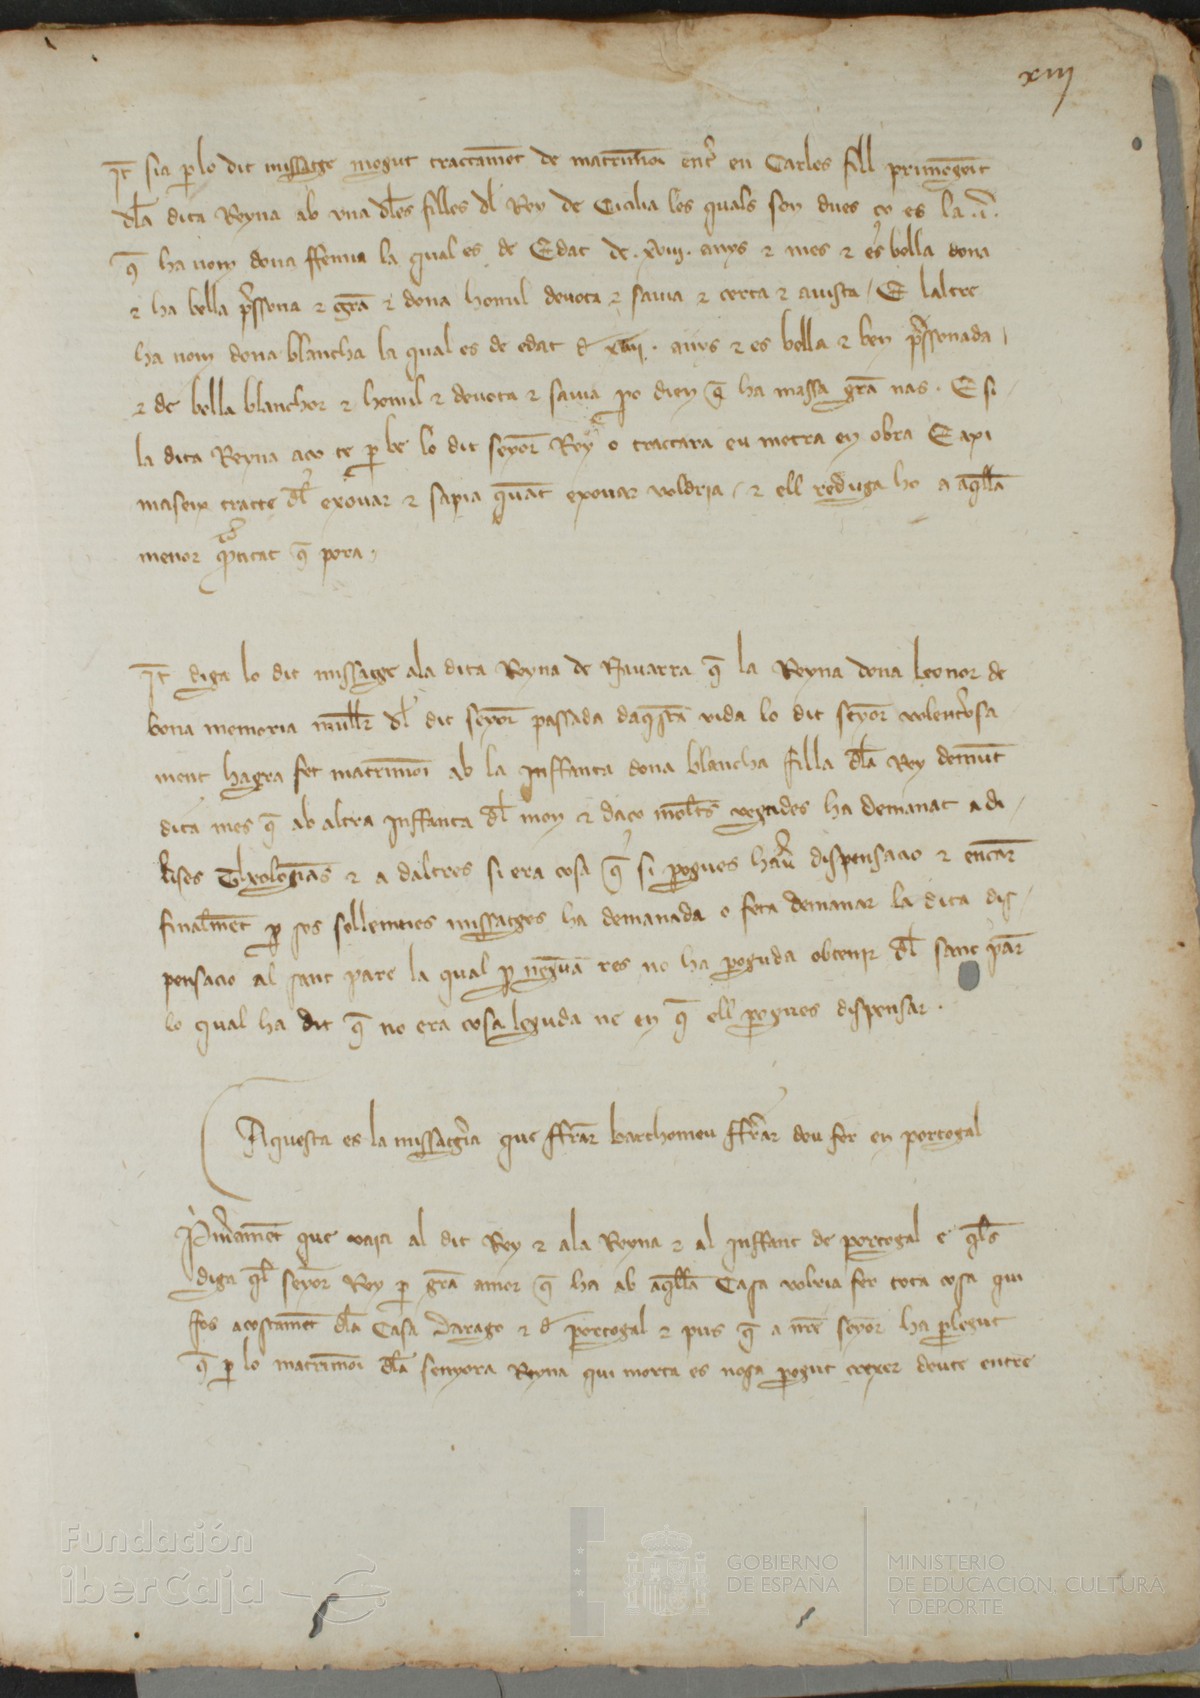 xiij
It sia per lo dit missatge mogut tractament de matrimoni entre en Carles fill primogenit
dla dita Reyna ab vna dles filles dl Rey de Cicilia les quals son dues ço es la .i.
q ha nom dona la qual es de Edat de .xviii. anys z mes z es bella dona
z ha bella persona z gran z dona homil deuota z sauia z certa z auista / E laltre
ha nom dona blancha la qual es de edat d anys z es bella z ben personada /
z de bella blanchor z homil z deuota z sauia po dien q ha massa gran nas . E si
la dita Reyna aço te per be lo dit senyor Rey o tractara eu metra en obra E axi
mateix tracte dl exouar z sapia quant exouar voldria / z ell reduga ho a aqlla
menor qtitat q pora /
It diga lo dit missatge ala dita Reyna de Nauarra q la Reyna dona leonor de
bona memoria muller dl dit senyor passada daqsta vida lo dit senyor volenterosa
ment hagra fet matrimoni ab la Inffanta dona blancha filla dla Rey demunt
dita mes q ab altra Inffanta dl mon z daço moltes vegades ha demanat a di /
uises Theologians z a daltres si era cosa q si pogues hauer dispensacio z encar
finalment per sos sollemnes missatges ha demanada o feta demanar la dita dis-
pensacio al sant pare la qual per neguna res no ha poguda obtenir dl sant par
lo qual ha dit q no era cosa leguda ne en q ell pogues dispensar .
Aquesta es la missatgeria que ffrar barthomeu ffrar deu fer en portogal
Primerament que vaia al dit Rey z ala Reyna z al Inffant de portogal e qls
diga ql senyor Rey per gran amor q ha ab aqlla Casa volria fer tota cosa qui
fos acostament dla Casa Darago z d portogal z pus q a nre senyor ha plegut
q per lo matrimoni dla senyora Reyna qui morta es noga pogut crexer deute entre
Fundación
iberCaja
GOBIERNO
DE ESPAÑA
MINISTERIO
DE EDUCACIÓN, CULTURA
Y DEPORTE